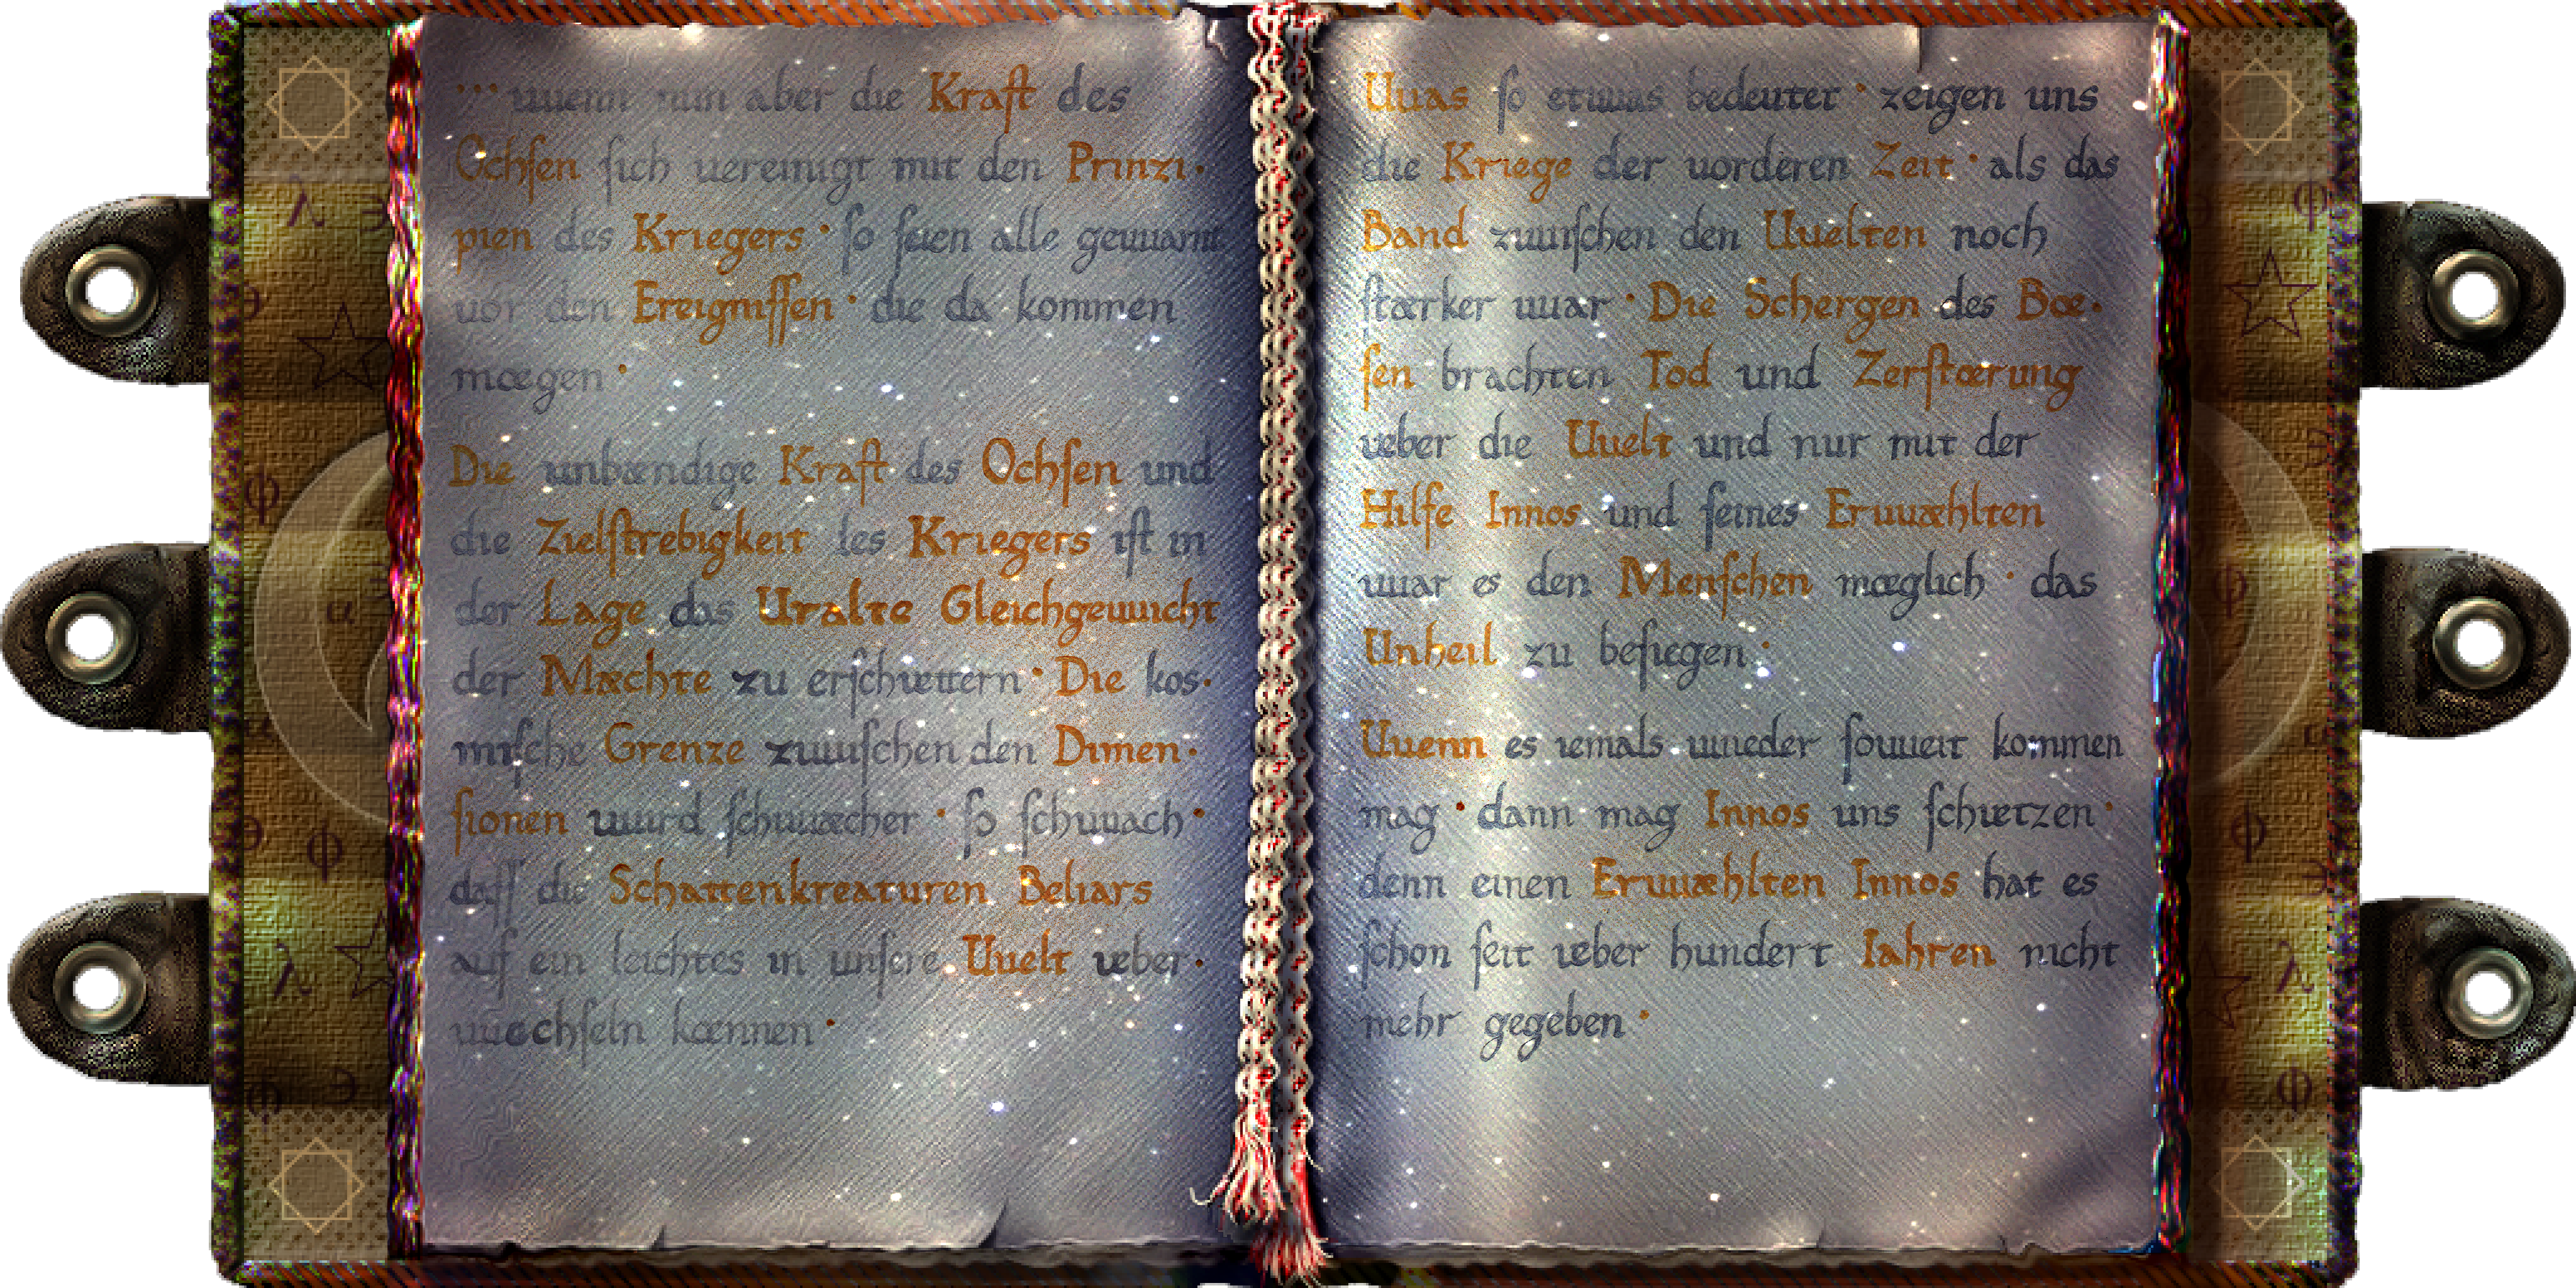 ... uuenn nun aber die Kraft des
Ochſen ſich uereinigt mit den Prinzi·
pien des Kriegers · ſo ſeien alle geuuarnt
uor den Ereigniſſen · die da kommen
mœgen ·
Die unbændige Kraft des Ochſen und
die Zielſtrebigkeit des Kriegers iſt in
der Lage das Uralte Gleichgeuuicht
der Mæchte zu erſchuettern · Die kos·
miſche Grenze zuuiſchen den Dimen·
ſionen uuird ſchuuæcher · ſo ſchuuach ·
daſſ die Schattenkreaturen Beliars
auf ein leichtes in unſere Uuelt ueber·
uuechſeln kœnnen ·
Uuas ſo etuuas bedeutet · zeigen uns
die Kriege der uorderen Zeit · als das
Band zuuiſchen den Uuelten noch
ſtærker uuar · Die Schergen des Bœ·
ſen brachten Tod und Zerſtœrung
ueber die Uuelt und nur mit der
Hilfe Innos und ſeines Eruuæhlten
uuar es den Menſchen mœglich · das
Unheil zu beſiegen ·
Uuenn es iemals uuieder ſouueit kommen
mag · dann mag Innos uns ſchuetzen ·
denn einen Eruuæhlten Innos hat es
ſchon ſeit ueber hundert Iahren nicht
mehr gegeben ·